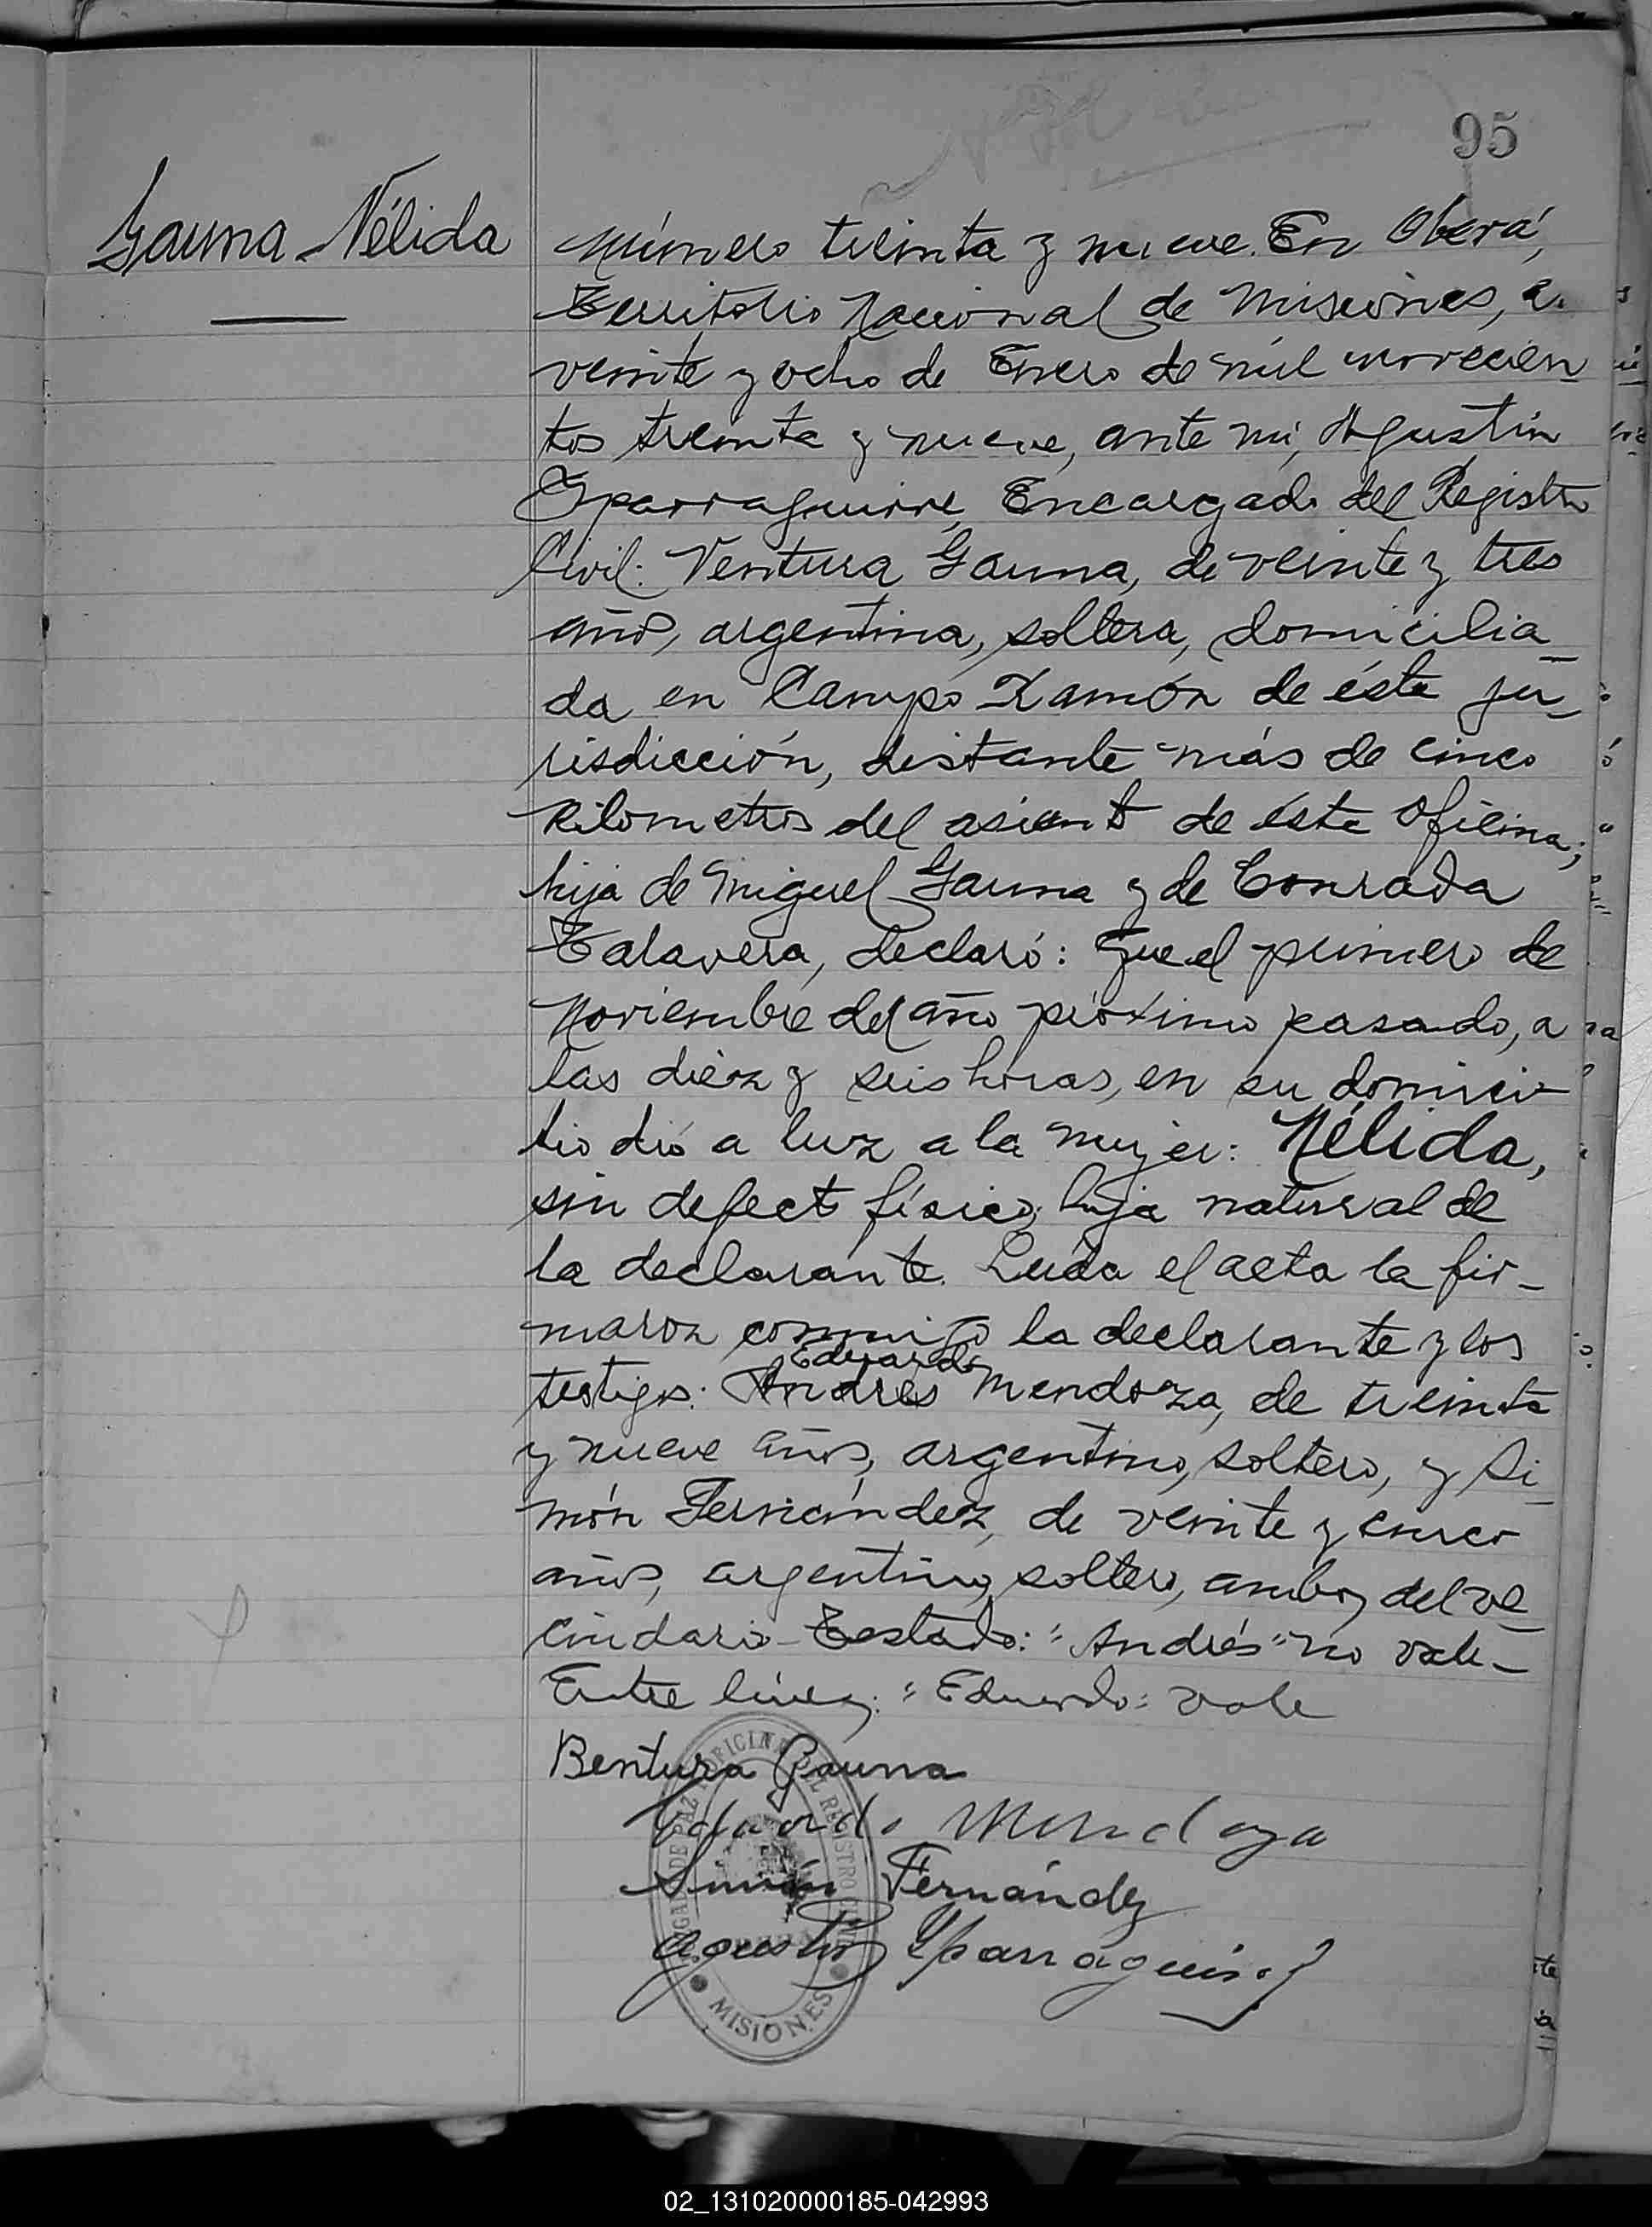 95
Gauna Nélida
Número treinta y nueve. En Oberá,
Territorio Nacional de Misiones, a
veinte y ocho de Enero de mil novecien
tos treinta y nueve, ante mi, Agustín
Yparraguirre, Encargado del Registro
Civil: Ventura Gauna, de veinte y tres
años, argentina, soltera, domicilia_
da en Campo Ramón de ésta ju_
risdicción, distante más de cinco
kilometros del asiento de ésta Oficina;
hija de Miguel Gauna y de Conrada
Talavera, declaró: Que el primero de
Noviembre del año próximo pasado, a
las diez y seis horas, en su domici-
lio dió a luz a la mujer: Nélida,
sin defecto físico; hija natural de
la declarante. Leida el acta la fir_
maron conmigo la declarante y los
Eduardo
testigos: Andres Mendoza, de treinta
y nueve años, argentino, soltero, y Si_
món Fernández, de veinte y cinco
años, argentino, soltero, ambos del ve_
cindario- Testado: "Andrés" no vale-
Entre lineas: "Eduardo" vale
Bentura Gauna
Eduardo Mendoza
Simón Fernández
Agustín Yparraguirre
JUZGADO DE PAZ Y OFICINA DEL REGISTRO CIVIL
MISIONES
02_131020000185-042993